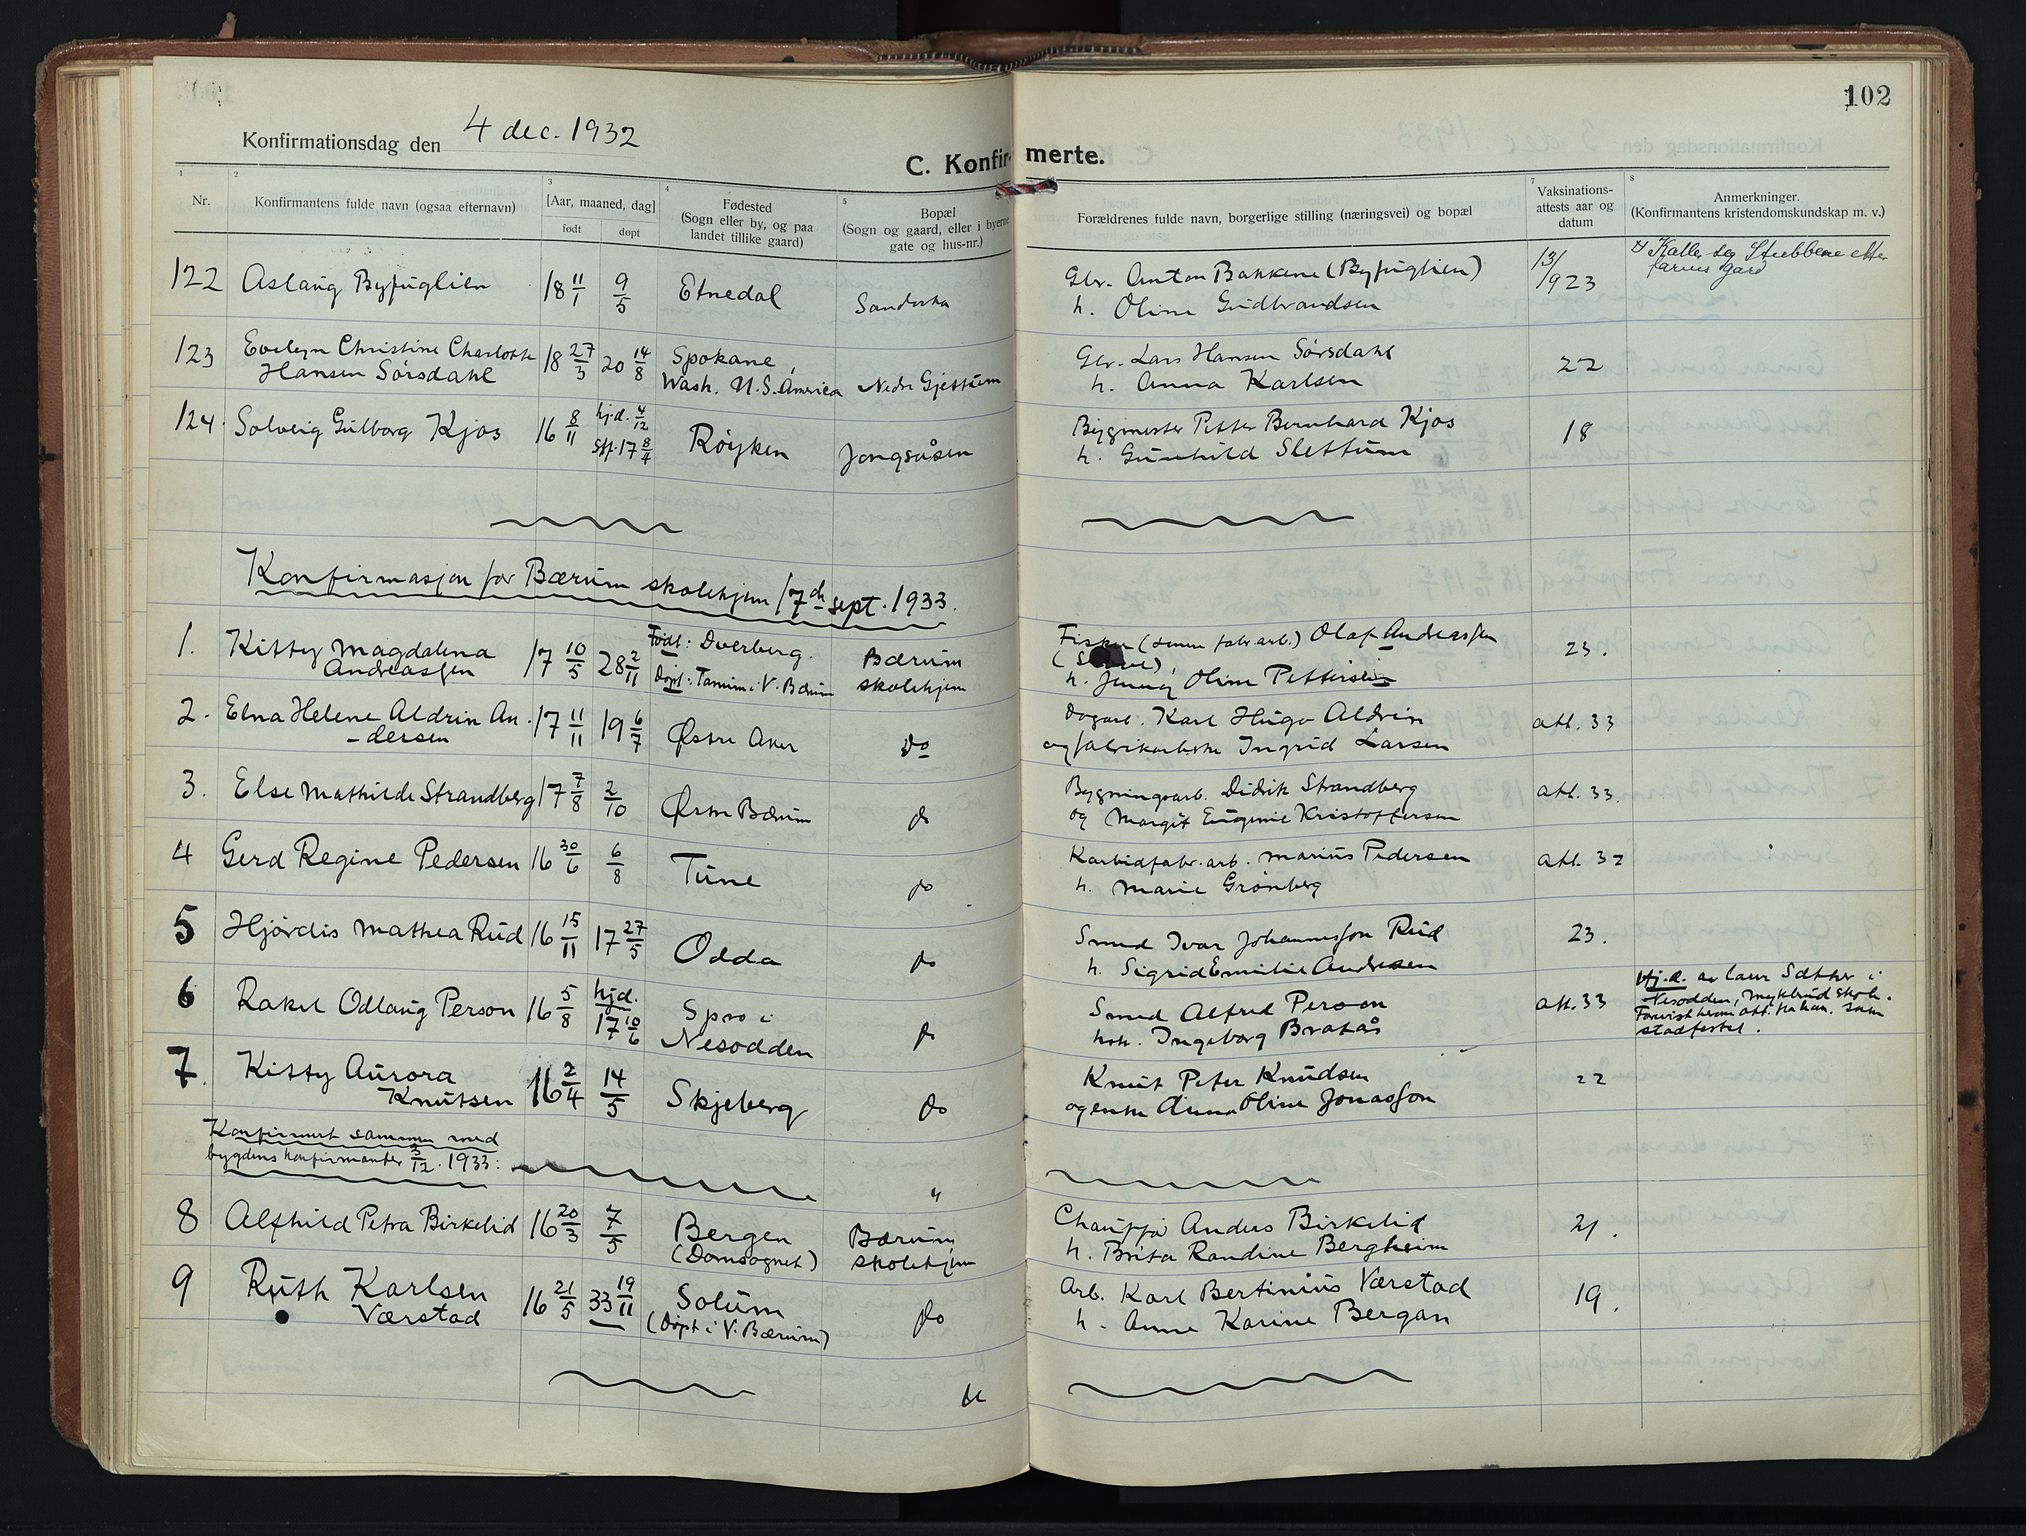 102
Konfirmationsdag den 4 dec. 1932
C. Konfirmerte.
1 2 3 4 5 7 8
Nr.
Konfirmantens fulde navn (ogsaa efternavn)
[Aar, maaned, dag]
født døpt
Fødested
(Sogn eller by, og paa
landet tillike gaard)
Bopæl
(Sogn og gaard, eller i byerne
gate og hus-nr.)
Forældrenes fulde navn, borgerlige stilling (næringsvei) og bopæl
Vaksinations-
attests aar og
datum
Anmerkninger.
(Konfirmantens kristendomskundskap m. v.)
122 Aslaug Byfuglien 18 11/1 9/5 Etnedal Sandvika Gbr. Anton Bakkene (Byfuglien) 13/
h. Oline Gudbrandsen /923
Kaller seg Stubbene efter
farens gard
123 Evelyn Christine Charlotte 18 27/3 20 14/8 Spokane, Gbr. Lars Hansen Sørsdahl 22
Hansen Sørsdahl Wash. U.S. America Nedre Gjettum h. Anna Karlsen
124. Solveig Gulborg Kjos 16 8/11 hj.d. 4/12 Røyken Jongsåsen Bygmester Petter Bernhard Kjos 18
stf. 17 8/4 h. Gunhild Slettum
Konfirmasjon for Bærum skolehjem 17de sept. 1933.
1. Kitty Magdalena 17 10/5 28 2/11 Født: Dverberg. Bærum Fisker (senere fabr.arb.) Olaf Andreassen 23.
Andreassen Døpt: Tanum i V. Bærum skolehjem
h. Jenny Oline Pettersen
2. Elna Helene Aldrin An- 17 11/11 19 6/7 Østre Aker do Dagarb. Karl Hugo Aldrin att. 33
-dersen og fabrikarbske Ingrid Larsen
3. Else Mathilde Strandberg 17 7/8 2/10 Østre Bærum do Bygningsarb. Didrik Strandberg att. 33.
og Margit Eugenie Kristoffersen
4 Gerd Regine Pedersen 16 30/6 6/8 Tune do Karbidfabr.arb. Marius Pedersen att. 32
h. Marie Grønberg
5 Hjørdis Mathea Rud 16 15/11 17 27/5 Odda do Smed Ivar Johannesson Rud 23.
h. Sigrid Emilie Andresen
6 Rakel Odlaug Person 16 5/8 hjd. 17 10/6 Spro i do Smed Alfred Person att. 33
Nesodden h. Ingeborg Bratås
Hj.d. av Laur Sæther i
Nesodden, Myklerud skole.
stadfestet.
7. Kitty Aurora 16 2/4 14/5 Skjeberg do Knut Peter Knudsen 22
Knutsen og enke Anna Oline Jonasson
Konfirmert sammen med
bygdens konfirmanter 3/12. 1933:
"
8 Alfhild Petra Birkelid 16 20/3 7/5 Bergen Bærum Chauffør Anders Birkelid 21.
(Domsognet) skolehjem h. Brita Randine Bergheim
9 Ruth Karlsen 16 21/5 33 19/11 Solum do Arb. Karl Bertinius Værstad 19.
Værstad (Døpt i V. Bærum) h. Anne Karine Bergan